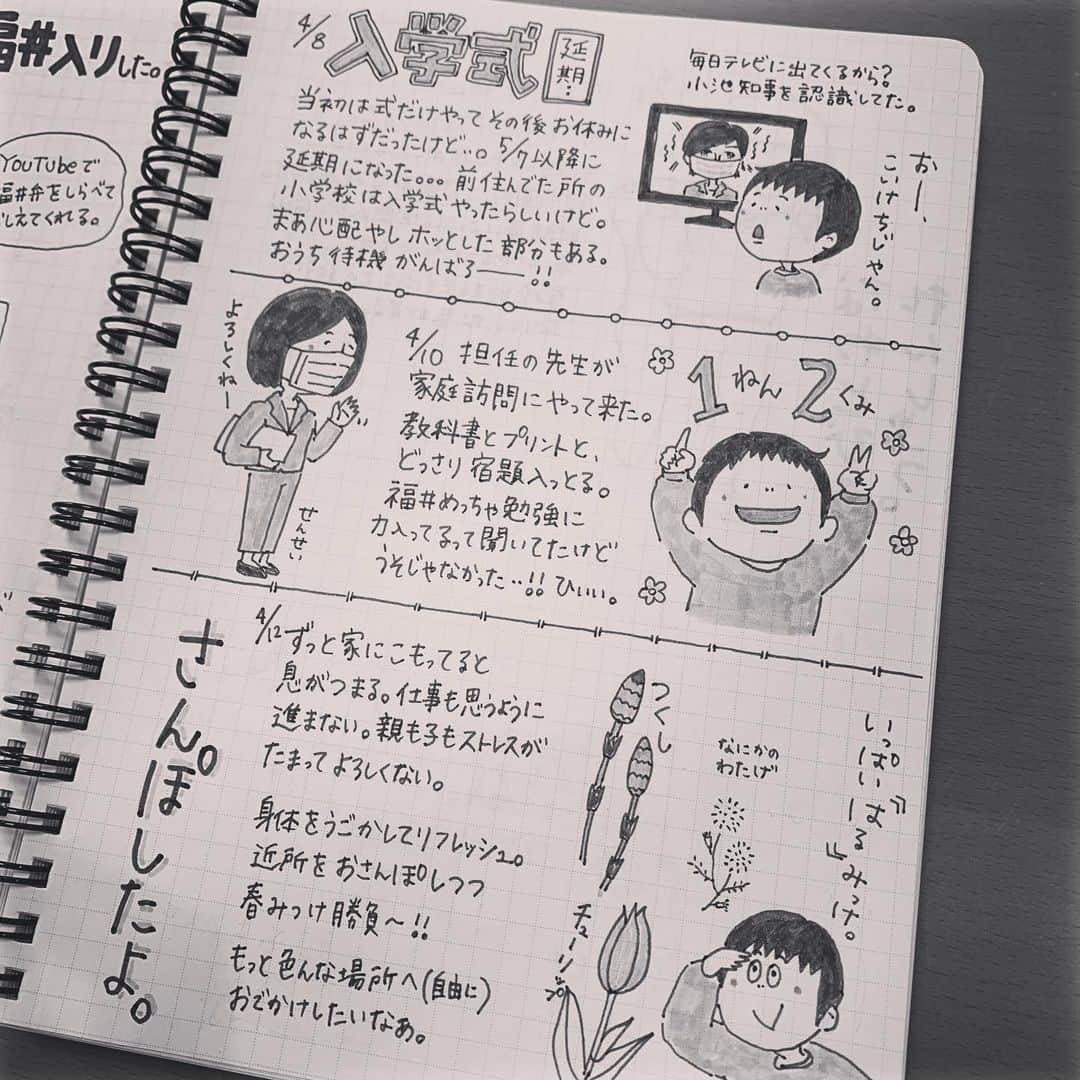 福井入りした。
YouTubeで
福井弁をしらべて
おしえてくれる。
4/8 入学式 延期…
当初は式だけやってその後お休みに
なるはずだったけど…。5/7以降に
延期になった。。。前住んでた所の
小学校は入学式やったらしいけど。
まあ心配やしホッとした部分もある。
おうち待機がんばろーー!!
毎日テレビに出てくるから?
小池知事を認識してた。
おー、
こいけちじやん。
よろしくねー
せんせい
4/10 担任の先生が
家庭訪問にやって来た。
教科書とプリントと、
どっさり宿題入っとる。
福井めっちゃ勉強に
力入ってるって聞いてたけど
うそじゃなかった‥!! ひぃぃ。
1ねん2くみ
さんぽしたよ。
4/12 ずっと家にこもってると
息がつまる。仕事も思うように
進まない。親も子もストレスが
たまってよろしくない。
身体をうごかしてリフレッシュ。
近所をおさんぽしつつ
春みつけ勝負〜!!
もっと色んな場所へ(自由に)
おでかけしたいなぁ。
つくし
なにかの
わたげ
チューリップ
いっぱい『はる』みっけ。